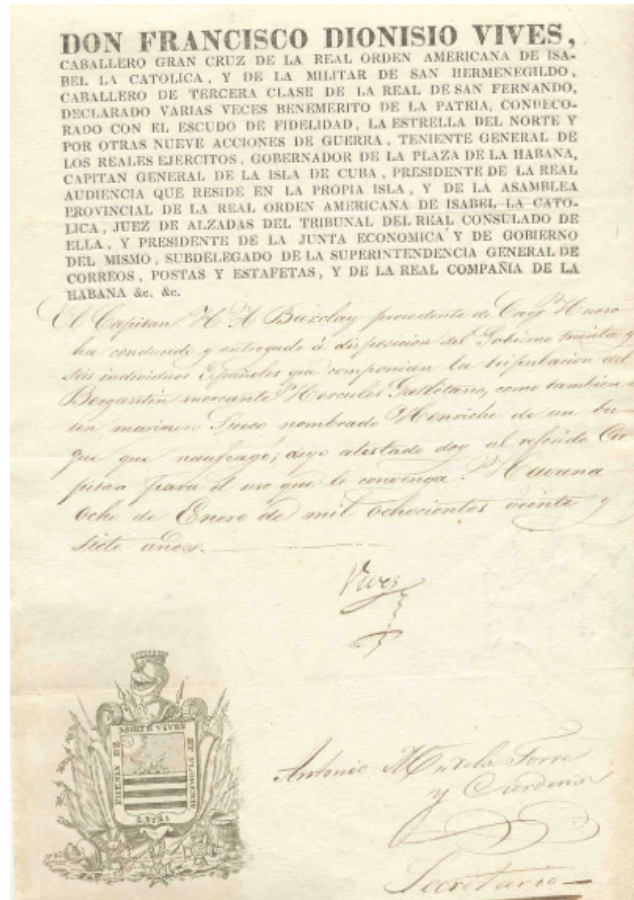 DON FRANCISCO DIONISIO VIVES,
CABALLERO GRAN CRUZ DE LA REAL ORDEN AMERICANA DE ISA-
BEL LA CATOLICA, Y DE LA MILITAR DE SAN HERMENEGILDO,
CABALLERO DE TERCERA CLASE DE LA REAL DE SAN FERNANDO,
DECLARADO VARIAS VECES BENEMERITO DE LA PATRIA, CONDECO-
RADO CON EL ESCUDO DE FIDELIDAD, LA ESTRELLA DEL NORTE Y
POR OTRAS NUEVE ACCIONES DE GUERRA, TENIENTE GENERAL DE
LOS REALES EJERCITOS, GOBERNADOR DE LA PLAZA DE LA HABANA,
CAPITAN GENERAL DE LA ISLA DE CUBA, PRESIDENTE DE LA REAL
AUDIENCIA QUE RESIDE EN LA PROPIA ISLA, Y DE LA ASAMBLEA
PROVINCIAL DE LA REAL ORDEN AMERICANA DE ISABEL LA CATO-
LICA, JUEZ DE ALZADAS DEL TRIBUNAL DEL REAL CONSULADO DE
ELLA, Y PRESIDENTE DE LA JUNTA ECONOMICA Y DE GOBIERNO
DEL MISMO, SUBDELEGADO DE LA SUPERINTENDENCIA GENERAL DE
CORREOS, POSTAS Y ESTAFETAS, Y DE LA REAL COMPAÑIA DE LA
HABANA &c. &c.
El Capitan H A Barclay procedente de Cayo Hueso
ha conducido y entregado á disposicion del Gobierno treinta y
seis individuos Españoles que componian la tripulacion del
Bergantin mercante Hercules Gaditano, como tambien a
un marinero Sueco nombrado Henriche de un bu-
que que naufragó; cuyo atestado doy al referido Ca-
pitan para el uso que le convenga. Havana
ocho de Enero de mil ochocientos veinte y
siete años.
Vives
Antonio M de la Torre
y Cardenas
Secretario
MORTE VIVES